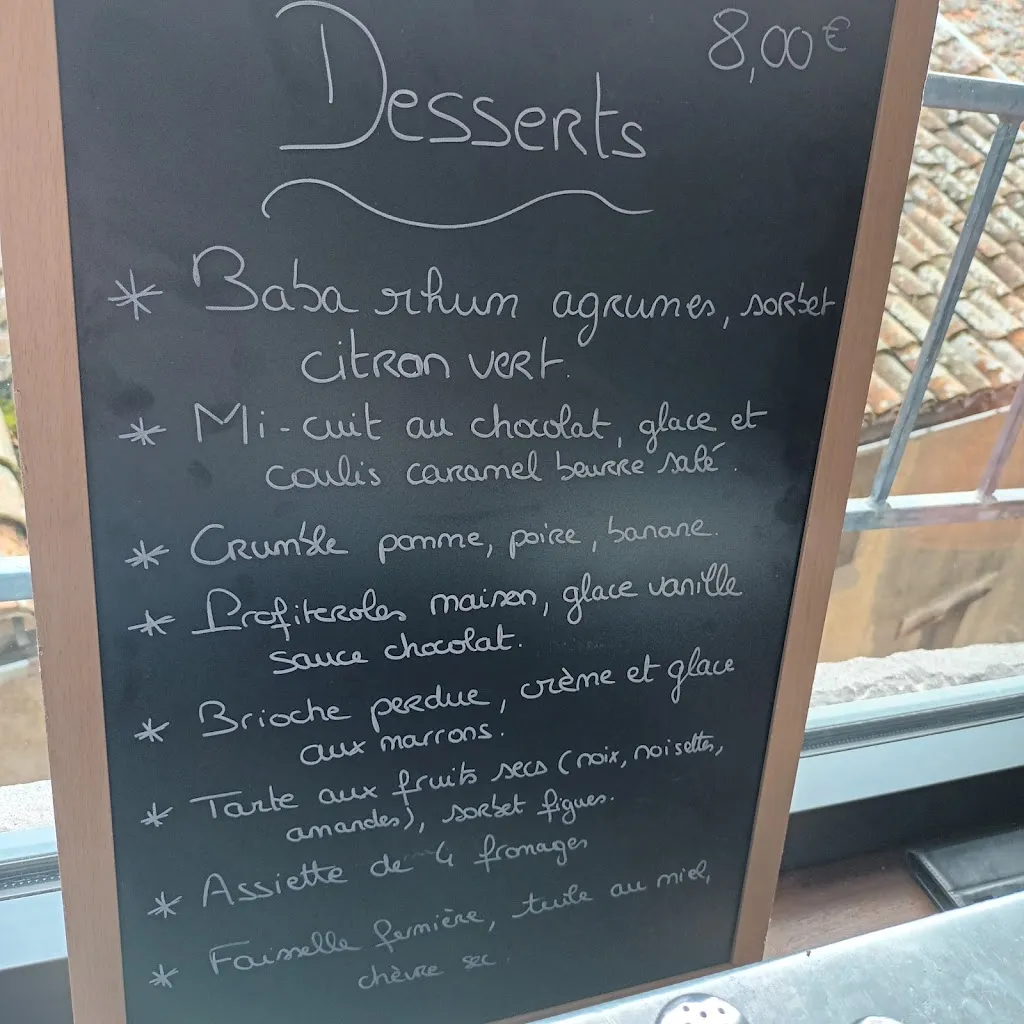 8,00€
Desserts
* Baba rhum agrumes, sorbet
citron vert.
* Mi-cuit au chocolat, glace et
coulis caramel beurre salé.
* Crumble pomme, poire, banane.
* Profiteroles maison, glace vanille
sauce chocolat.
* Brioche perdue, crème et glace
aux marrons.
* Tarte aux fruits secs (noix, noisettes,
amandes), sorbet figues.
* Assiette de 4 fromages
* Faisselle fermière, tuile au miel,
chèvre sec.